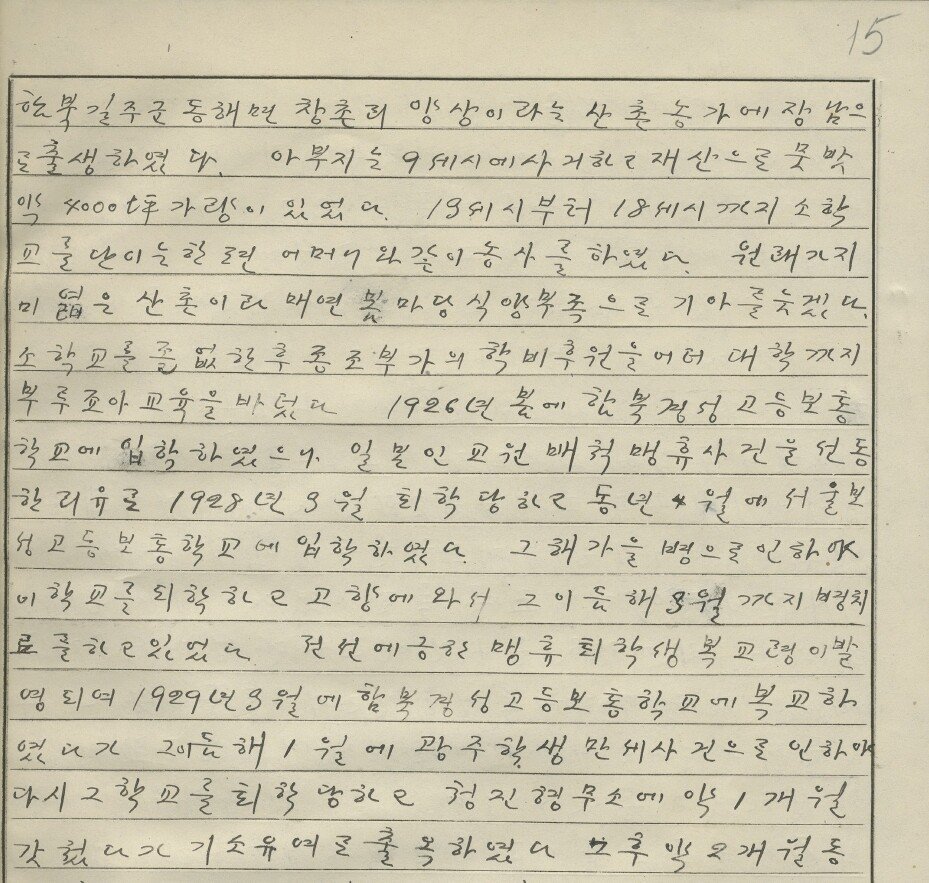 15
함북길주군 동해면 창촌리 양상이라는 산촌농가에 장남으
로출생하였다. 아부지는 9세시에사거하고 재산으로 뭇밧
약 4000坪가량이 있었다. 13세시부터 18세시까지 소학
교를 단이는한편 어머니와같이농사를하였다. 원래가지
미 엷은 산촌이라 매연 봄마당식양부족으로 기아를늣겻다.
소학교를졸없한후종조부가의 학비후원을어더 대학까지
부루죠아교육을바덧다 1926년 봄에 함북경성고등보통
학교에입학하였으나. 일본인교원배척맹휴사건을선동
한리유로 1928년 3월 퇴학당하고 동년 4월에서울보
성고등보통학교에입학하였다. 그해가을병으로인하야
이학교를퇴학하고고향에와서 그이듬해 3월까지병치
료를하고있었다 전선에긍한 맹휴퇴학생복교령이발
영되여 1929년 3월에 함북경성고등보통학교에복교하
였다가 그이듬해 1월에 광주학생만세사건으로인하야
다시그학교를퇴학당하고 청진형무소에약 1개월
갓첬다가 기소유예로출옥하였다 그후약 2개월동